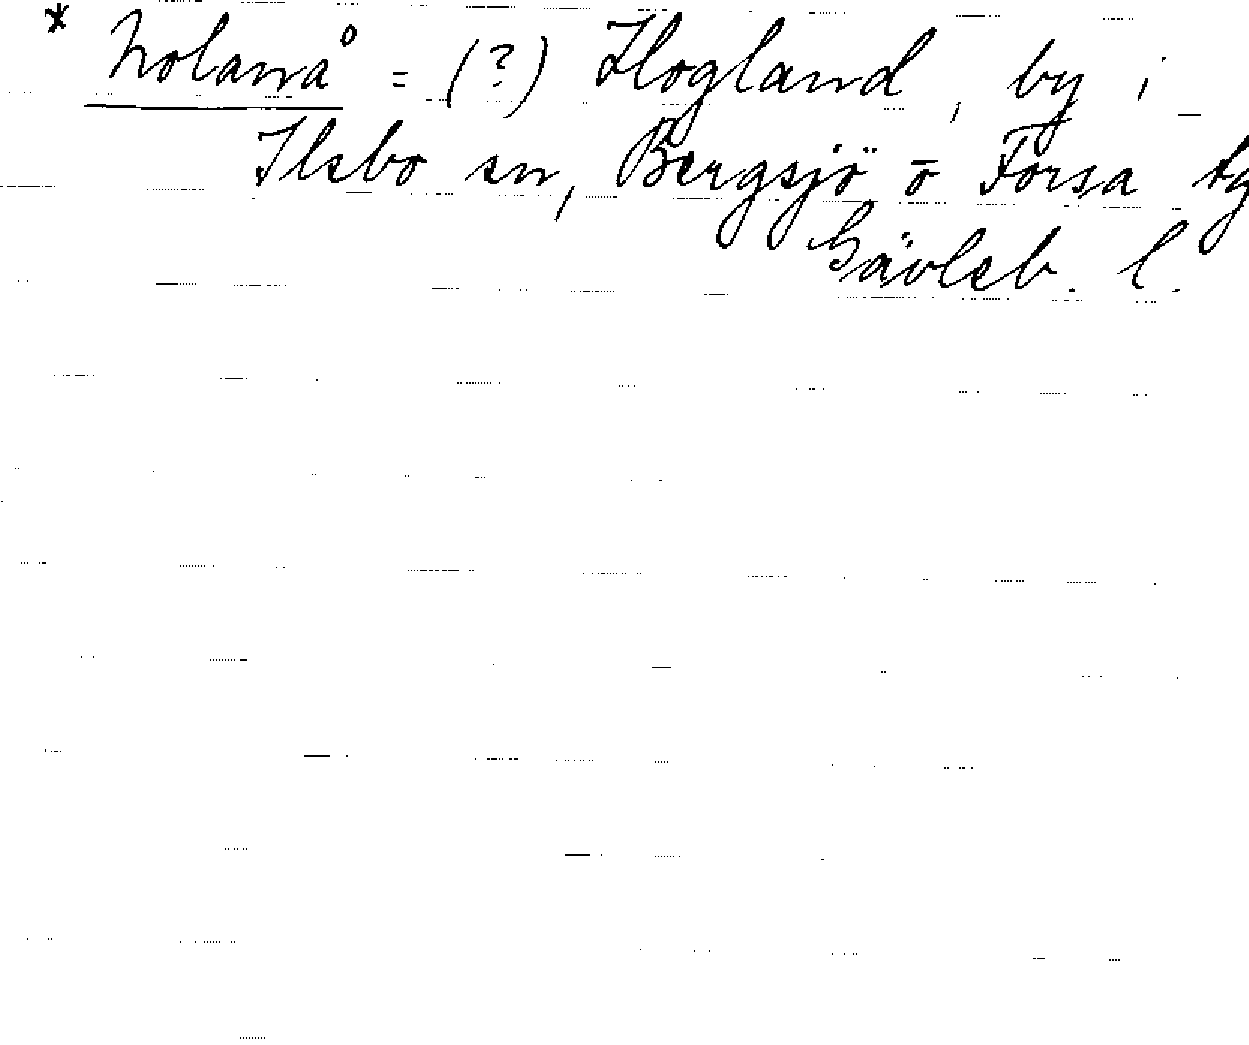 * Nolanå = (?) Ilogland, by i
Ilsbo sn, Bergsjö o Forsa tg
Gävleb. l.